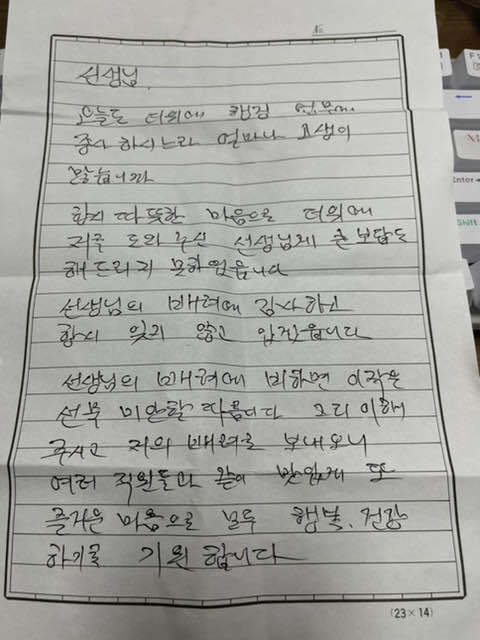 No
선생님.
오늘도 더위에 행정 업무에
종사 하시느라 얼마나 고생이
많습니까
항시 따뜻한 마음으로 더위에
저를 도와 주신 선생님께 큰 보답도
해 드리지 못하였읍니다
선생님의 배려에 감사하고
항시 잊지 않고 있겠읍니다
선생님의 배려에 비하면 이 작은
선물 미안할 따름니다 그리 이해
주시고 저의 배려로 보내오니
여러 직원들과 같이 맛있게 또
즐거운 마음으로 모두 행복. 건강
하기를 기원 합니다
(23×14)
Enter
Shift